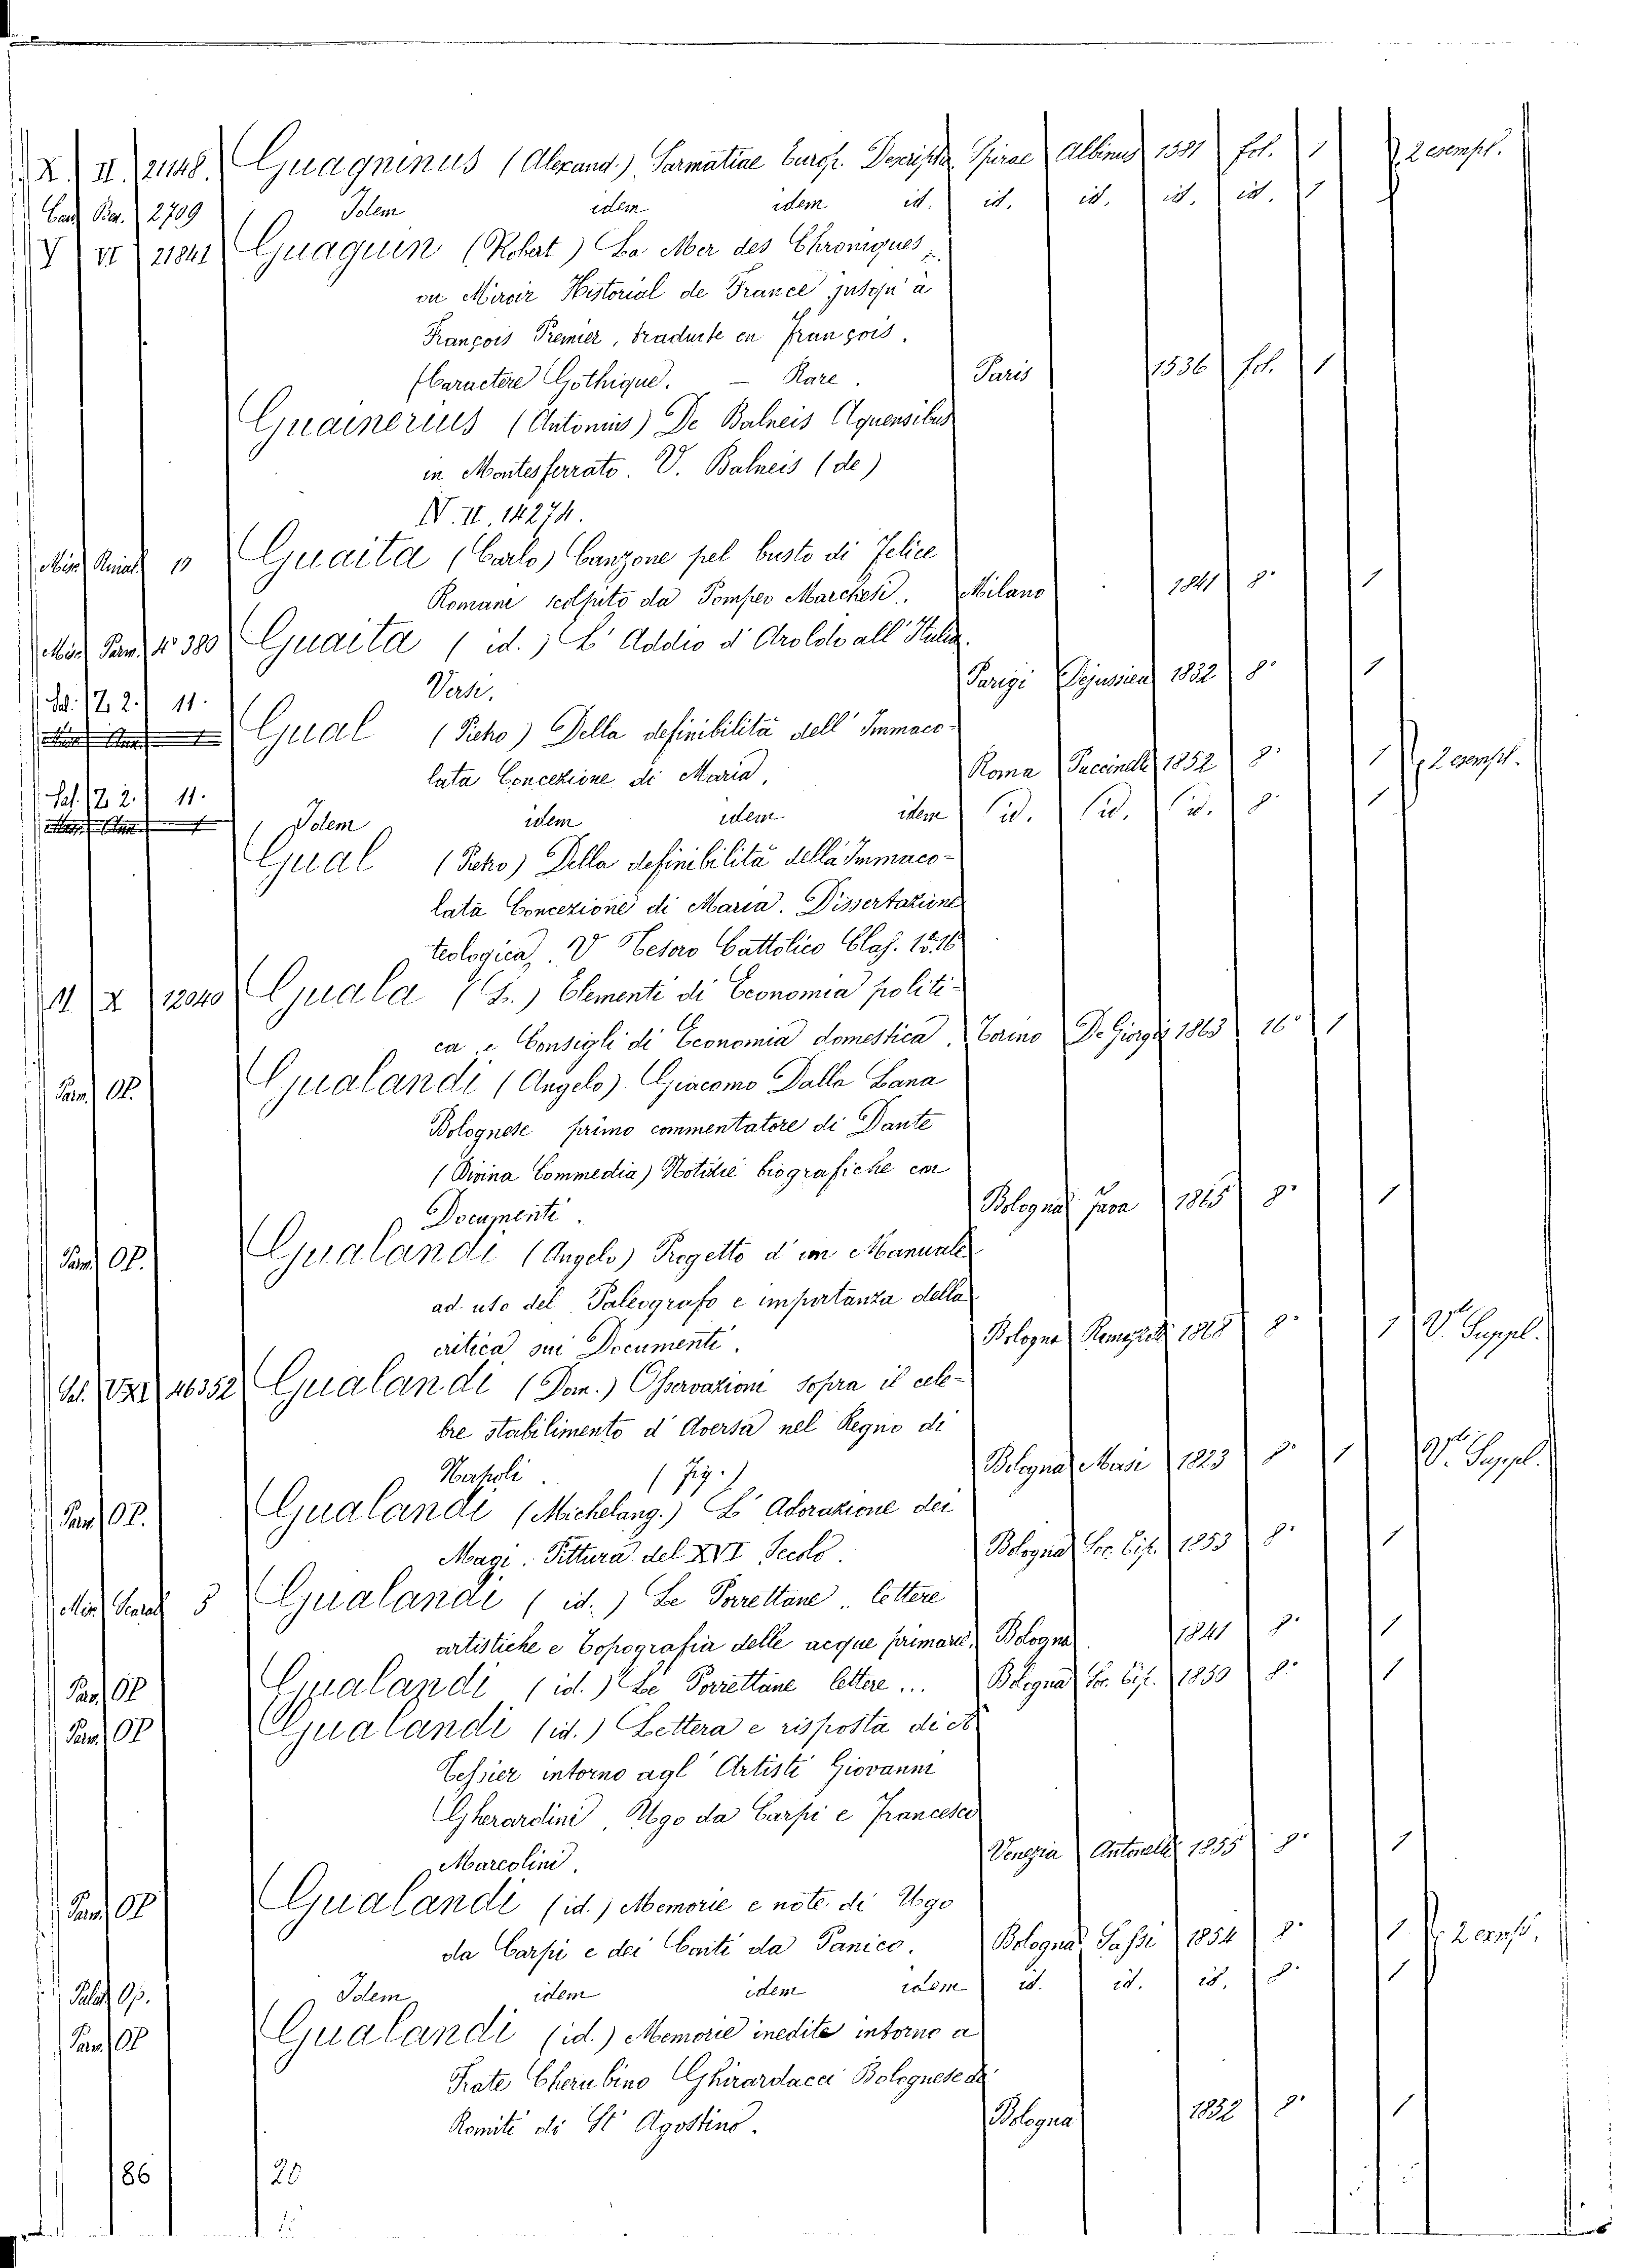 X. II. 21148. Guagninus (Alexand.) Sarmatiae Europ. Descriptio Spirae Albinus 1581 fol. 1 2 esempl.
2709 Idem idem idem id. id. id. id. id. 1
V VI 21841 Guaguin (Robert) La Mer des Chroniques
ou Miroir Historial de France jusqu'à
François Premier, traduite en françois.
(Caractere Gothique. — Rare. Paris 1536 fol. 1
Guainerius (Antonius) De Balneis Aquensibus
in Montesferrato. V. Balneis (de)
N. II. 14274.
10 Guaita (Carlo) Canzone pel busto di Felice
Romani scolpito da Pompeo Marchesi. Milano 1841 8° 1
Misc. Pam. N° 380 Guaita (id.) L'Addio d'Aroldo all'Italia.
Versi. Parigi Dejussieu 1832 8° 1
Sal. Z. 2. 11.
Gual (Pietro) Della definibilità dell'Immaco-
lata Concezione di Maria. Roma Puccinelli 1852 8° 1 2 esempl.
Sal. Z. 2. 11.
Idem idem idem idem id. id. id. 8° 1
Gual (Pietro) Della definibilità della Immaco-
lata Concezione di Maria. Dissertazione
teologica. V Tesoro Cattolico Clas. 1516
11 X 12040 Guala (L.) Elementi di Economia politi-
ca, e Consigli di Economia domestica. Torino De Giorgis 1863 16° 1
Pam. OP. Gualandi (Angelo) Giacomo Dalla Lana
Bolognese primo commentatore di Dante
(Divina Commedia) Notizie biografiche con
Documenti. Bologna 1865 8° 1
Pam. OP. Gualandi (Angelo) Progetto d'un Manuale
ad uso del Paleografo e importanza della
critica sui Documenti. Bologna 1868 8° 1 V. Suppl.
Sal. VXI 46352 Gualandi (Dom.) Osservazioni sopra il cele-
bre stabilimento d'Aversa nel Regno di
Napoli. (Fig.) Bologna Masi 1823 8° 1 V. Suppl.
Pam. OP. Gualandi (Michelang.) L'Adorazione dei
Magi. Pittura del XVI Secolo. Bologna Soc. Tip. 1853 8° 1
5 Gualandi (id.) Le Porrettane. lettere
artistiche e Topografia delle acque primarie. Bologna 1841 8° 1
Pam. OP Gualandi (id.) Le Porrettane lettere... Bologna Soc. Tip. 1850 8° 1
Pam. OP Gualandi (id.) Lettera e risposta di A.
Tessier intorno agl'Artisti Giovanni
Gherardini, Ugo da Carpi e Francesco
Marcolini. Venezia Antonelli 1855 8° 1
Pam. OP Gualandi (id.) Memorie e note di Ugo
da Carpi e dei Conti da Panico. Bologna Sassi 1854 8° 1 2 esempl.
Palat. Op. Idem idem idem idem id. id. id. 8° 1
Pam. OP Gualandi (id.) Memorie inedite intorno a
Frate Cherubino Ghirardacci Bolognese de'
Romiti di St Agostino. Bologna 1852 8° 1
86 20